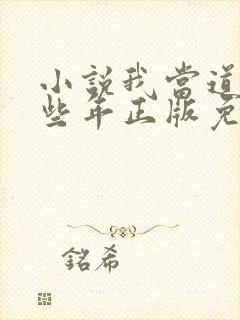 小說我當道
些年正版免
銘希